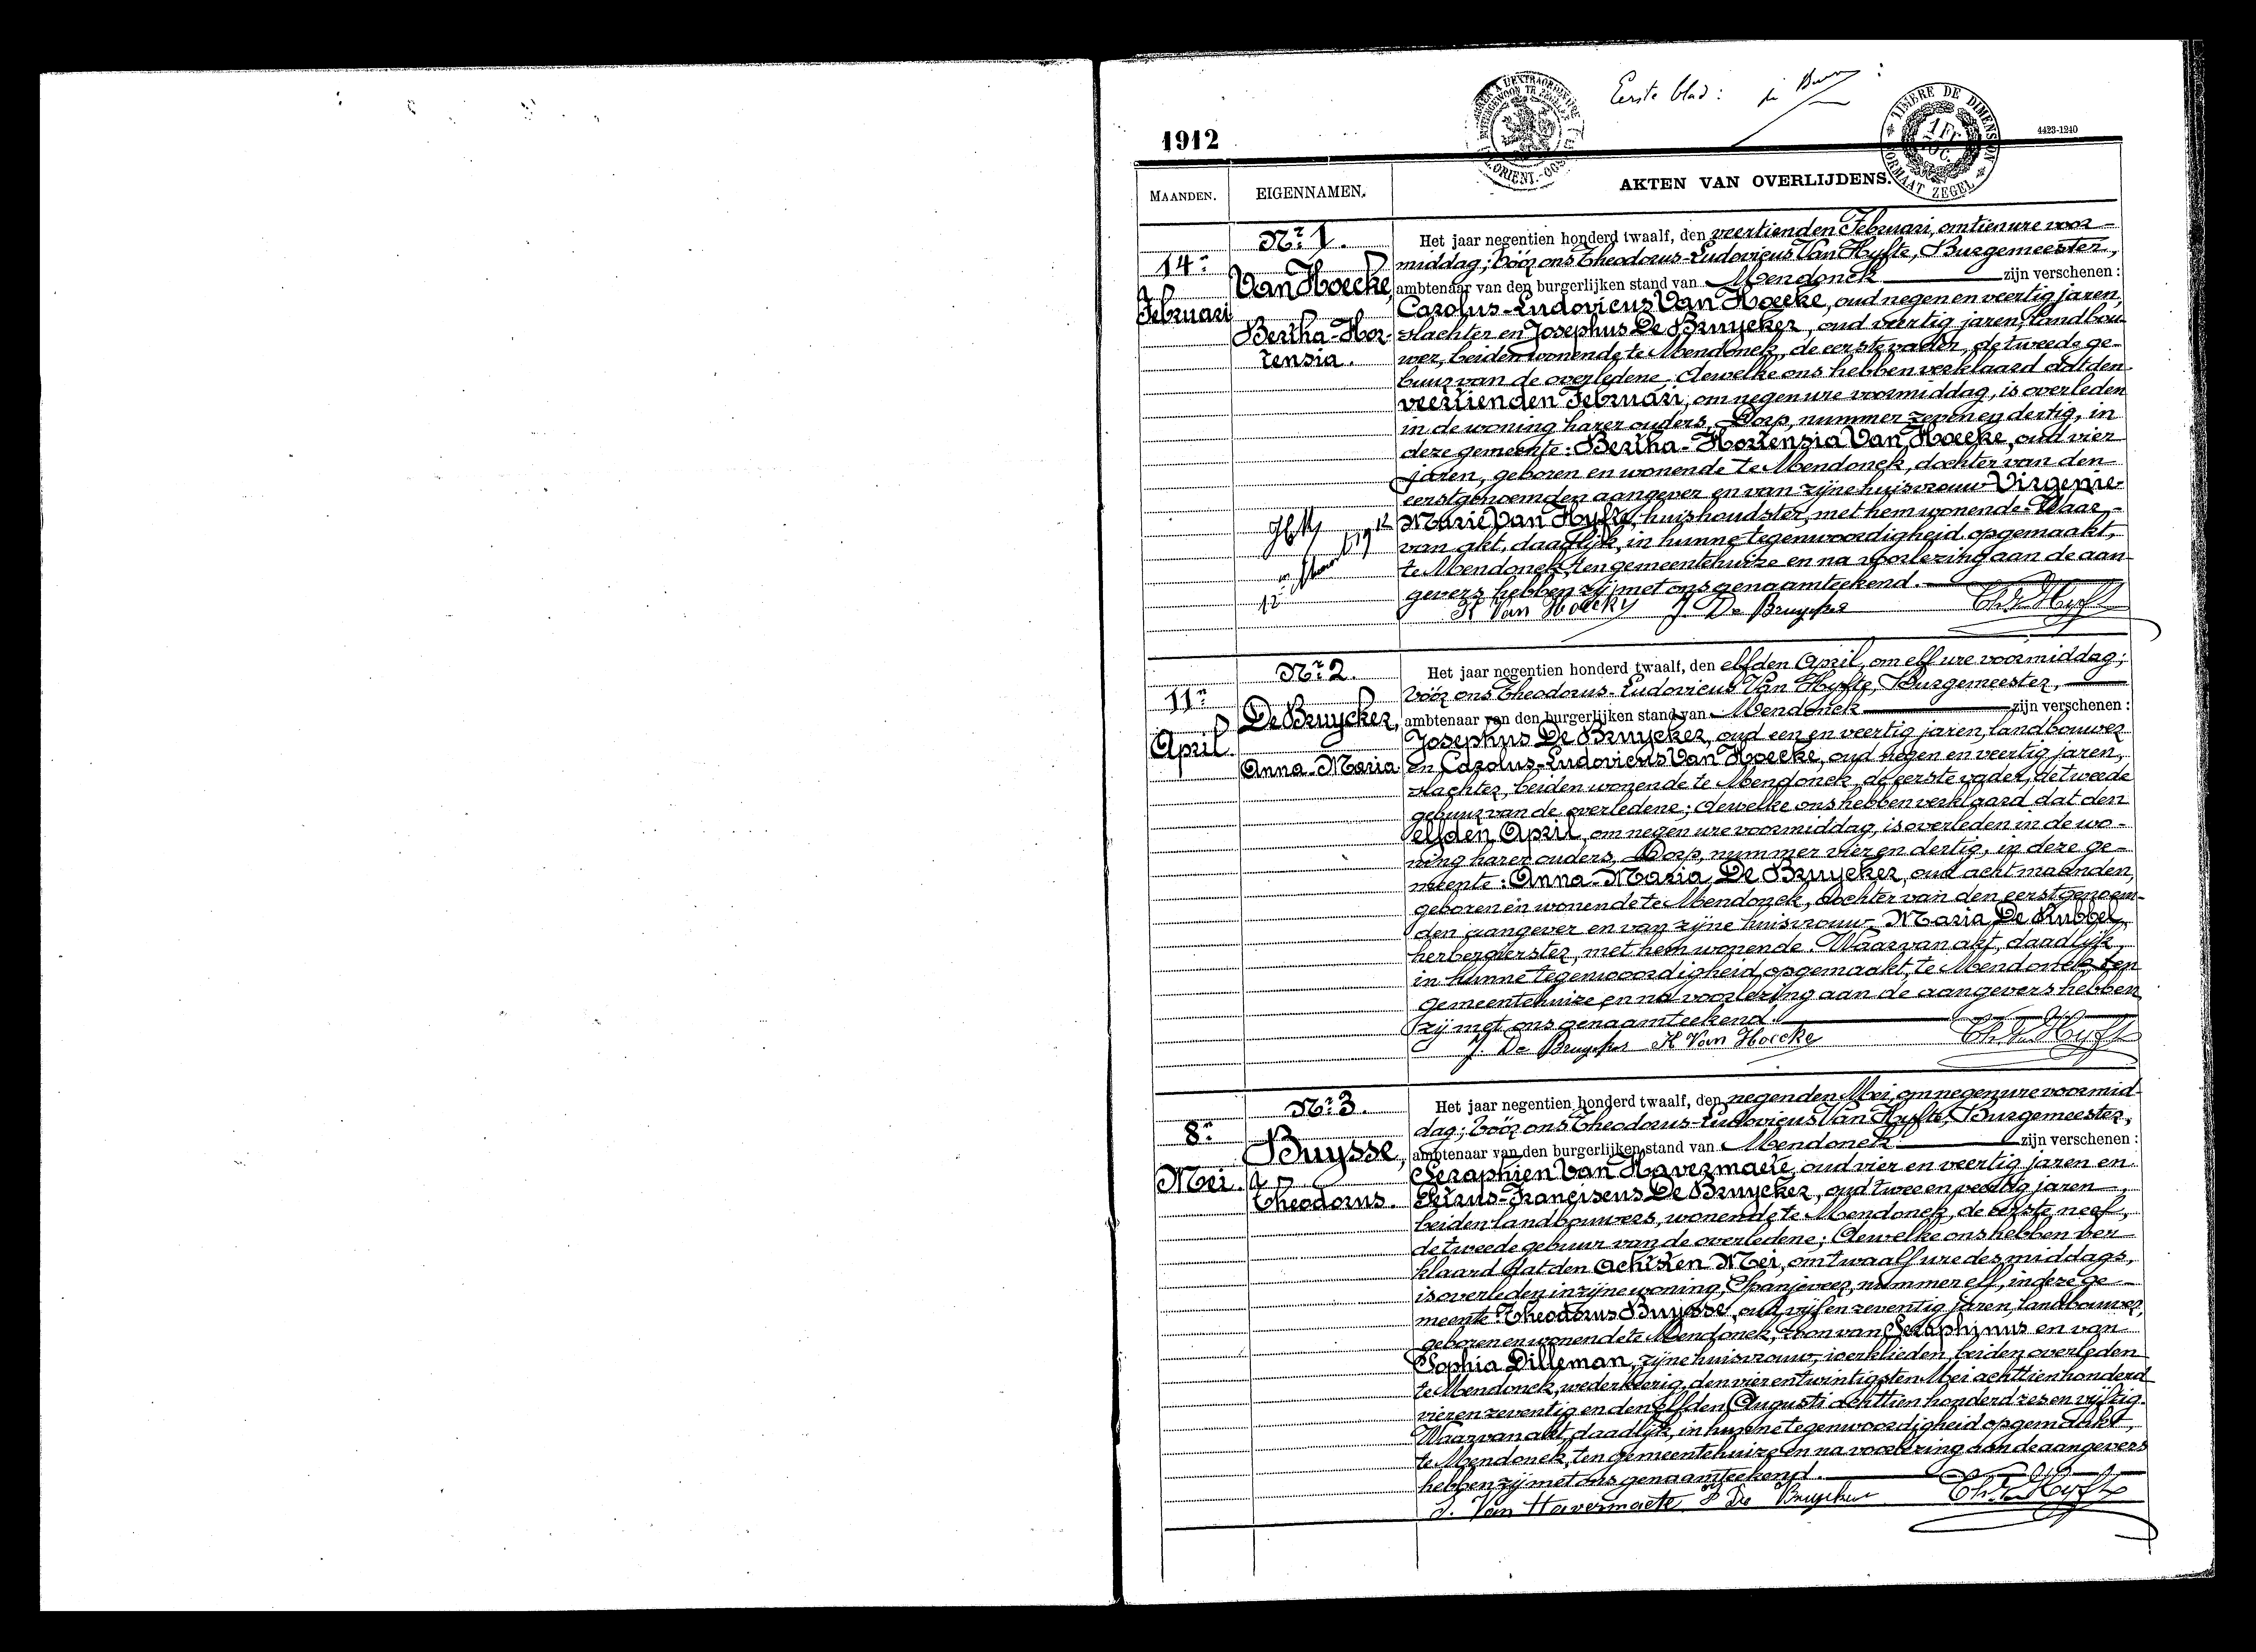 Eerste blad :
1912
4423-1240
TIMBRE DE DIMENSION
FORMAAT ZEGEL
1 Fr.
MAANDEN.
EIGENNAMEN.
AKTEN VAN OVERLIJDENS.
14n
Februari
Nr 1.
Van Hoecke,
Bertha-Hor-
tensia.
Het jaar negentien honderd twaalf, den veertienden Februari, om tien ure voor-
middag; vóór ons Theodorus-Ludovicus Van Hyfte, Burgemeester,
ambtenaar van den burgerlijken stand van Mendonck zijn verschenen :
Carolus-Ludovicus Van Hoecke, oud negen en veertig jaren,
slachter en Josephus De Bruycker, oud veertig jaren, landbou-
wer, beiden wonende te Mendonck, de eerste vader, de tweede ge-
buur van de overledene; dewelke ons hebben verklaard dat den
veertienden Februari, om negen ure voormiddag, is overleden
in de woning harer ouders, Dorp, nummer zeven en dertig, in
deze gemeente: Bertha-Hortensia Van Hoecke, oud vier
jaren, geboren en wonende te Mendonck, dochter van den
eerstgenoemden aangever en van zijne huisvrouw Virgenie-
Marie Van Hyfte, huishoudster, met hem wonende. Waar-
van akt, daadlijk, in hunne tegenwoordigheid opgemaakt,
te Mendonck, ten gemeentehuize en na voorlezing aan de aan-
gevers hebben zij met ons genaamteekend.
K Van Hoecke J. De Bruycker Th. Van Hyfte
11n
April
Nr 2.
De Bruycker,
Anna-Maria
Het jaar negentien honderd twaalf, den elfden April, om elf ure voormiddag;
vóór ons Theodorus-Ludovicus Van Hyfte, Burgemeester,
ambtenaar van den burgerlijken stand van Mendonck zijn verschenen :
Josephus De Bruycker, oud een en veertig jaren, landbouwer
en Carolus-Ludovicus Van Hoecke, oud negen en veertig jaren,
slachter, beiden wonende te Mendonck, de eerste vader, de tweede
gebuur van de overledene; dewelke ons hebben verklaard dat den
elfden April, om negen ure voormiddag, is overleden in de wo-
ning harer ouders, Dorp, nummer vier en dertig, in deze ge-
meente: Anna-Maria De Bruycker, oud acht maanden,
geboren en wonende te Mendonck, dochter van den eerstgenoem-
den aangever en van zijne huisvrouw Maria De Kubbel,
herbergierster, met hem wonende. Waarvan akt, daadlijk,
in hunne tegenwoordigheid opgemaakt, te Mendonck, ten
gemeentehuize en na voorlezing aan de aangevers hebben
zij met ons genaamteekend.
J. De Bruycker K Van Hoecke Th. Van Hyfte
8n
Mei.
Nr 3.
Buysse,
Theodorus.
Het jaar negentien honderd twaalf, den negenden Mei, om negen ure voormid-
dag; vóór ons Theodorus-Ludovicus Van Hyfte, Burgemeester,
ambtenaar van den burgerlijken stand van Mendonck zijn verschenen :
Seraphien Van Havermaete, oud vier en veertig jaren en
Petrus-Franciscus De Bruycker, oud twee en veertig jaren,
beiden landbouwers, wonende te Mendonck, de eerste neef,
de tweede gebuur van de overledene; dewelke ons hebben ver-
klaard dat den achtsten Mei, om twaalf ure des middags,
is overleden in zijne woning, Spanjeveer, nummer elf, in deze ge-
meente: Theodorus Buysse, oud vijf en zeventig jaren, landbouwer,
geboren en wonende te Mendonck, zoon van Seraphinus en van
Sophia Dilleman, zijne huisvrouw, werklieden, beiden overleden
te Mendonck, wederkeerig, den vier en twintigsten Mei achttien honderd
vier en zeventig en den elfden Augusti achttien honderd zes en vijftig.
Waarvan akt, daadlijk, in hunne tegenwoordigheid opgemaakt,
te Mendonck, ten gemeentehuize en na voorlezing aan de aangevers
hebben zij met ons genaamteekend.
S. Van Havermaete P De Bruycker Th. Van Hyfte